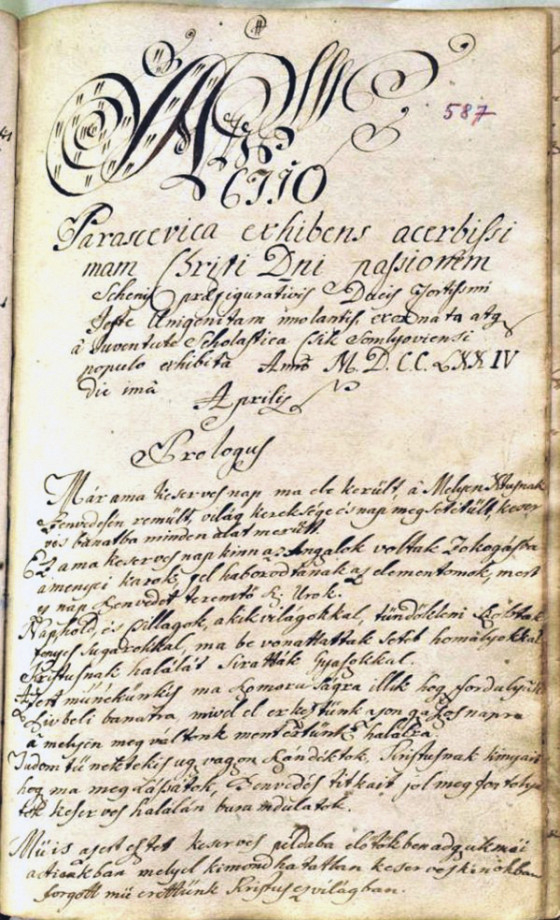 587
ACTIO
Parascevica exhibens acerbissi
mam Christi Dni passionem
Schemis præfigurativis Ducis Fortissimi
Jefte Unigenitam imolantis, exornata atq
â Juventute Scholastica Csik Somlyoviensi
populo exhibita Anno M.D.CC.LXXIV
die imâ
Aprilis
Prologus
Már ama keserves nap ma ele került, â Melyen Kristusnak
Szenvedésin remült, világ kereksége is nap meg setétült, keser
ves banatba minden alat merült.
Ez ama keserves nap kinn az Angalok voltak Zokogásba
amenyei karok, fel haborodtanak az elementomok, mert
es nap szenvedet teremtö Ur.
Nap hold, és Csillagok, akik világokkal, tündökleni szoktak
fenyes sugarokkal, ma be vonattattak setét homályokkal
Kristusnak halálát sirattak gyászokkal.
Azert münekünkis ma szomorusagra illik hog fordulyunk
Szivbeli banatra, mivel el erkeztünk azon gyászos napra
â melyen meg váltonk mentertünk halálra.
Tudom tü nektekis ug vagon szándéktok, Kristusnak kinyait
hog ma meg lássátok, Szenvedés titkait jol meg fontolyá
tok keserves halálán busundulatok.
Müis azert eztet keserves peldaba elötökben adguk mái
actionkban melyel kimondhatatlan keserves kinokban
forgott mü erettünk Kristus ez világban.